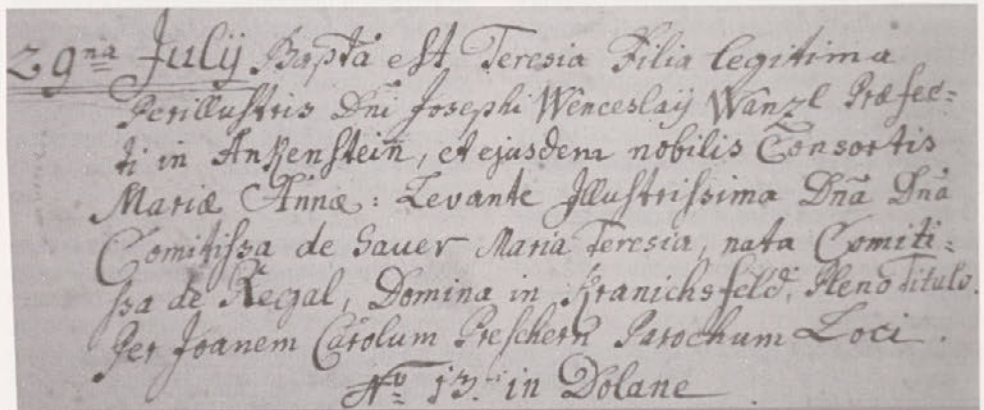 29na July Bapta est Teresia Filia legitima
Perillustris Dni Josephi Wenceslaij Wanzl Præfec=
ti in Ankenstein, et ejusdem nobilis Consortis
Mariæ Annæ: Levante Illustrissima Dnã Dnã
Comitissa de Sauer Maria Teresia, nata Comiti=
ssa de Regal, Domina in Kranichsfeld, Pleno Titulo.
Per Joanem Carolum Preschern Parochum Loci.
No 13. in Dolane